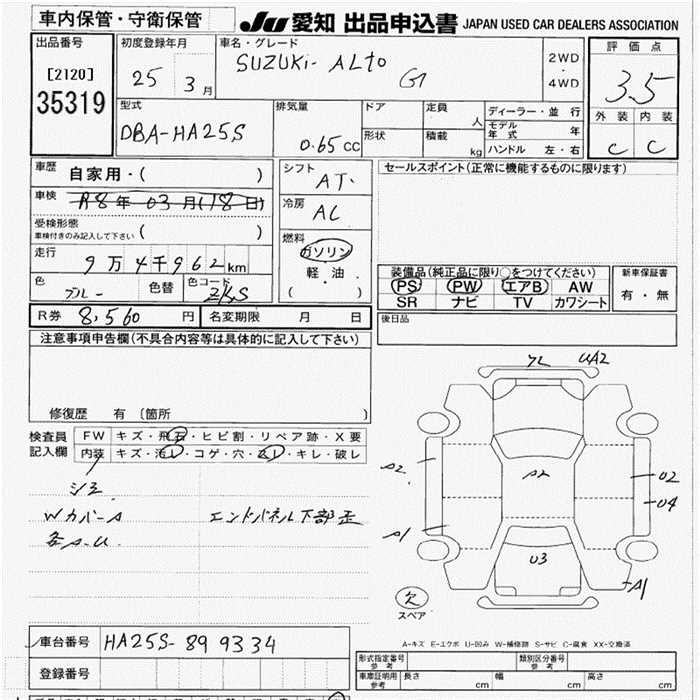 車内保管・守衛保管
Ju 愛知 出品申込書 JAPAN USED CAR DEALERS ASSOCIATION
出品番号
[2120]
35319
初度登録年月
25 3月
車名・グレード
SUZUKI- ALto G
2WD
・
4WD
評価点
3.5
外装 内装
C C
型式
DBA-HA25S
排気量
0.65 CC
ドア
定員 人
形状
積載 kg
ディーラー・並行
モデル年式 年
ハンドル 左・右
車歴 自家用・( )
車検 R8年 03月(18日)
受検形態
車検付きのみ記入して下さい ( )
走行 9万4千962km
色 ブルー 色替 色コード ZKS
シフト
AT
冷房
AC
燃料
ガソリン
軽・油
( )
セールスポイント(正常に機能するものに限ります)
装備品(純正品に限り○をつけてください)
PS PW エアB AW
SR ナビ TV カワシート
新車保証書
有・無
R券 8,560円 名変期限 月 日
後日品
注意事項申告欄(不具合内容等は具体的に記入して下さい)
修復歴 有 〔箇所 〕
検査員記入欄
FW キズ・飛石・ヒビ割・リペア跡・X要
内装 キズ・汚レ・コゲ・穴・スレ・キレ・破レ
シミ
Wカバー A エンドパネル下部歪
各A.U
フレ UA2
A2 A2 U2
U4
A1 U3
A1
欠
スペア
A-キズ E-エクボ U-凹み W-補修跡 S-サビ C-腐食 XX-交換済
車台番号 HA25S-899334
登録番号
形式指定番号 参考
類別区分番号 参考
車庫証明用 参考 長さ cm 幅 cm 高さ cm